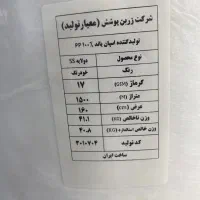 شرکت زرین پوشش (معیار تولید)
تولیدکننده اسپان باند ٪۱۰۰ PP
نوع محصول دولایه SS
رنگ خودرنگ
گرماژ (GSM) ۱۷
متراژ (M) ۱۵۰۰
عرض (cm) ۱۶۰
وزن ناخالص (KG) ۴۱.۱
وزن خالص استاندارد (KG) ۴۰.۸
کد تولید ۴۰۱۰۷۰۴
ساخت ایران